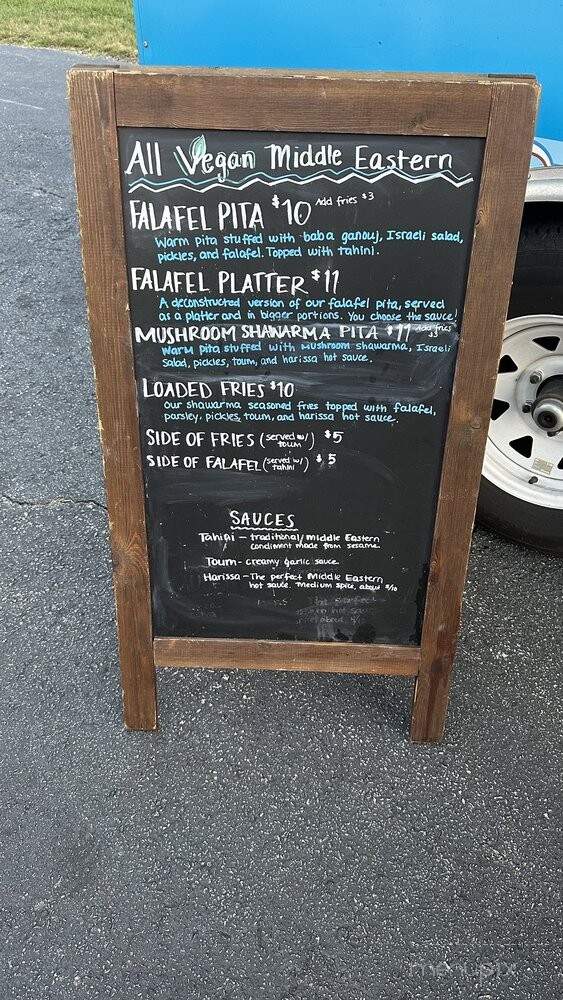 All Vegan Middle Eastern
FALAFEL PITA $10 Add fries $3
Warm pita stuffed with baba ganouj, Israeli salad,
pickles, and falafel. Topped with tahini.
FALAFEL PLATTER $11
A deconstructed version of our falafel pita, served
as a platter and in bigger portions. You choose the sauce!
MUSHROOM SHAWARMA PITA $11 Add fries $3
Warm pita stuffed with mushroom shawarma, Israeli
salad, pickles, toum, and harissa hot sauce.
LOADED FRIES $10
Our shawarma seasoned fries topped with falafel,
parsley, pickles, toum, and harissa hot sauce.
SIDE OF FRIES (served w/ toum) $5
SIDE OF FALAFEL (served w/ tahini) $5
SAUCES
Tahini - traditional/middle Eastern
condiment made from sesame.
Toum - creamy garlic sauce.
Harissa - The perfect Middle Eastern
hot sauce. Medium spice, about
menupix